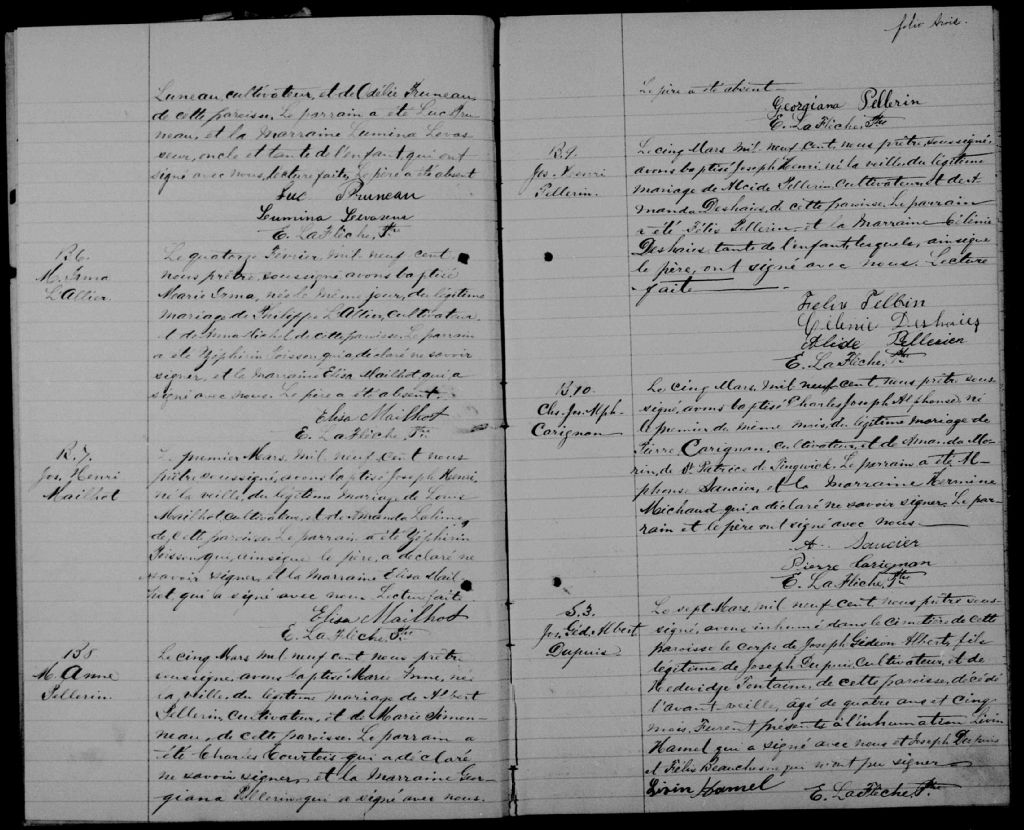 Luneau, cultivateur, et de Odélie Bruneau,
de cette paroisse. Le parrain a été Luc Bru-
neau, et la Marraine Lumina Levas-
seur, oncle et tante de l'enfant, qui ont
signé avec nous, lecture faite, Le père a été absent
Luc Bruneau
Lumina Levasseur
E. LaFlèche, Ptre
B6.
M. Irma
L'Allier.
Le quatorze Février, mil neuf cent,
nous prêtre, soussigné avons baptisé
Marie Irma, née le même jour, du légitime
mariage de Philippe L'Allier, Cultivateur
et de de cette paroisse. Le parrain
a été Zéphirin Poisson, qui a déclaré ne savoir
signer, et la marraine Elisa Mailhot, qui a
signé avec nous. Le père a été absent.
Elisa Mailhot
E. LaFlèche, Ptre
B.7.
Jos. Henri
Mailhot
Le premier Mars, mil neuf cent nous
prêtre soussigné, avons baptisé Joseph Henri,
né la veille, du légitime mariage de Louis
Mailhot, cultivateur, et de Amanda
de cette paroisse. Le parrain a été Zéphirin
Poisson qui, ainsique le père, a déclaré ne
savoir signer, et la Marraine Elisa Mail-
hot qui a signé avec nous. Lecture faite.
Elisa Mailhot
E. LaFlèche, Ptre
B8
M. Anne
Pellerin.
Le cinq Mars mil neuf cent nous prêtre
soussigné avons baptisé Marie Anne, née
la veille, du légitime mariage de Albert
Pellerin, Cultivateur, et de Marie Simon-
neau, de cette paroisse. Le parrain a
été Charles Courtois qui a déclaré
ne savoir signer, et la Marraine Geor-
giana Pellerin qui a signé avec nous.
folio trois.
Le père a été absent
Georgiana Pellerin
E. LaFlèche, Ptre
B.9.
Jos. Henri
Pellerin.
Le cinq Mars mil neuf cent, nous prêtre, soussigné,
avons baptisé Joseph Henri né la veille, du légitime
mariage de Alcide Pellerin, Cultivateur, et de A-
manda Deshaies, de cette paroisse. Le parrain
a été Félix Pellerin, et la Marraine Célénie
Deshaies, tante de l'enfant, lesquels, ainsique
le père, ont signé avec nous. Lecture
faite
Felix Pelbin
Célenie Deshaies
Alcide Pellerien
E. LaFlèche, Ptre
B.10.
Chs. Jos. Alph.
Carignan
Le cinq Mars, mil neuf cent, nous prêtre sous-
signé, avons baptisé Charles Joseph Alphonse, né
le premier de même mois, du légitime mariage de
Pierre Carignan, Cultivateur, et de Amanda Mo-
rin, de St Patrice de Tingwick. Le parrain a été Al-
phonse Saucier, et la Marraine Hermine
Michaud qui a déclaré ne savoir signer. Le par-
rain et le père ont signé avec nous.
A. Saucier
Pierre Carignan
E. LaFlèche, Ptre
S.3.
Jos. Géd. Albert
Dupuis
Le sept Mars, mil neuf cent, nous prêtre sous-
signé, avons inhumé dans le cimetière de cette
paroisse le corps de Joseph Gédéon Albert, fils
légitime de Joseph Dupuis Cultivateur, et de
Hedwidge Fontaine, de cette paroisse, décédé
l'avant-veille, âgé de quatre ans et cinq
mois. Furent présents à l'inhumation Livin
Hamel qui a signé avec nous et Joseph Dupuis
et Félix Beauchesne qui n'ont pu signer
Livin Hamel E. LaFlèche, Ptre